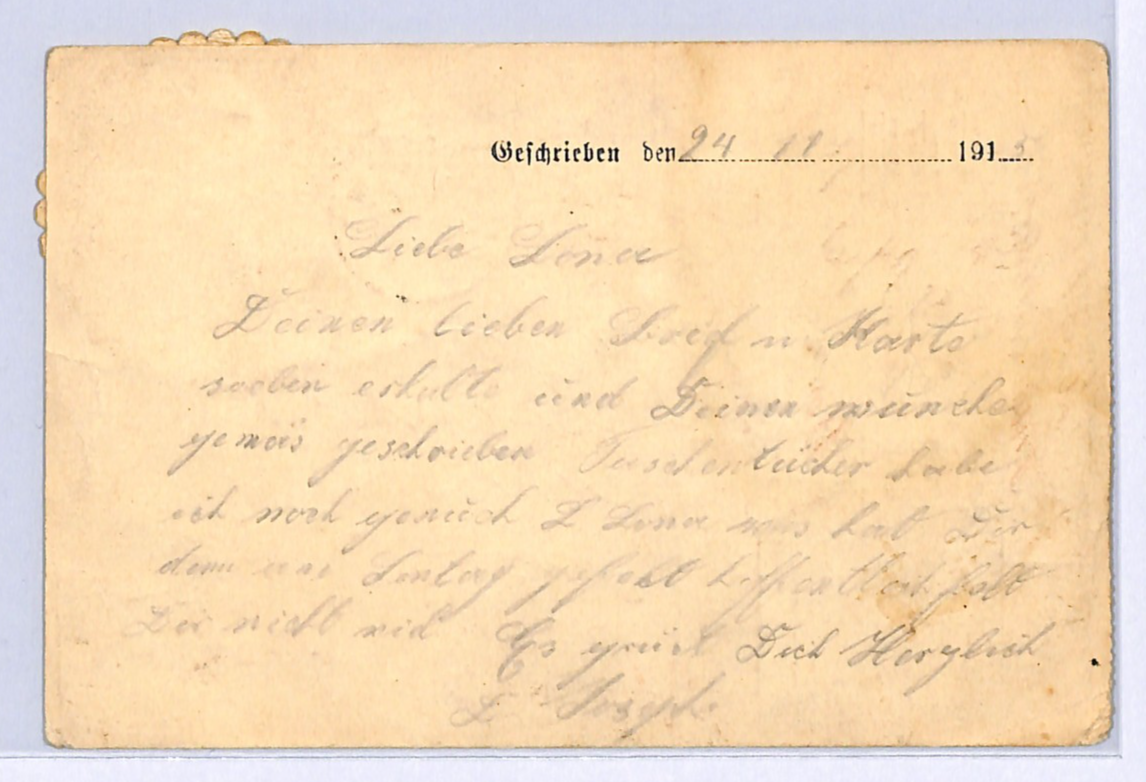 Geschrieben den 24 11. 1915
Liebe Lona
Deinen lieben Brief u Karte
soeben erhalte und Deinen wunche
gemäs geschrieben Taschentücher habe
ich noch genuch L Lona was hat Dir
denn am Sontag gefehlt hoffentlich fält
Dir nicht viel Es grüst Dich Herzlich
L Joseph